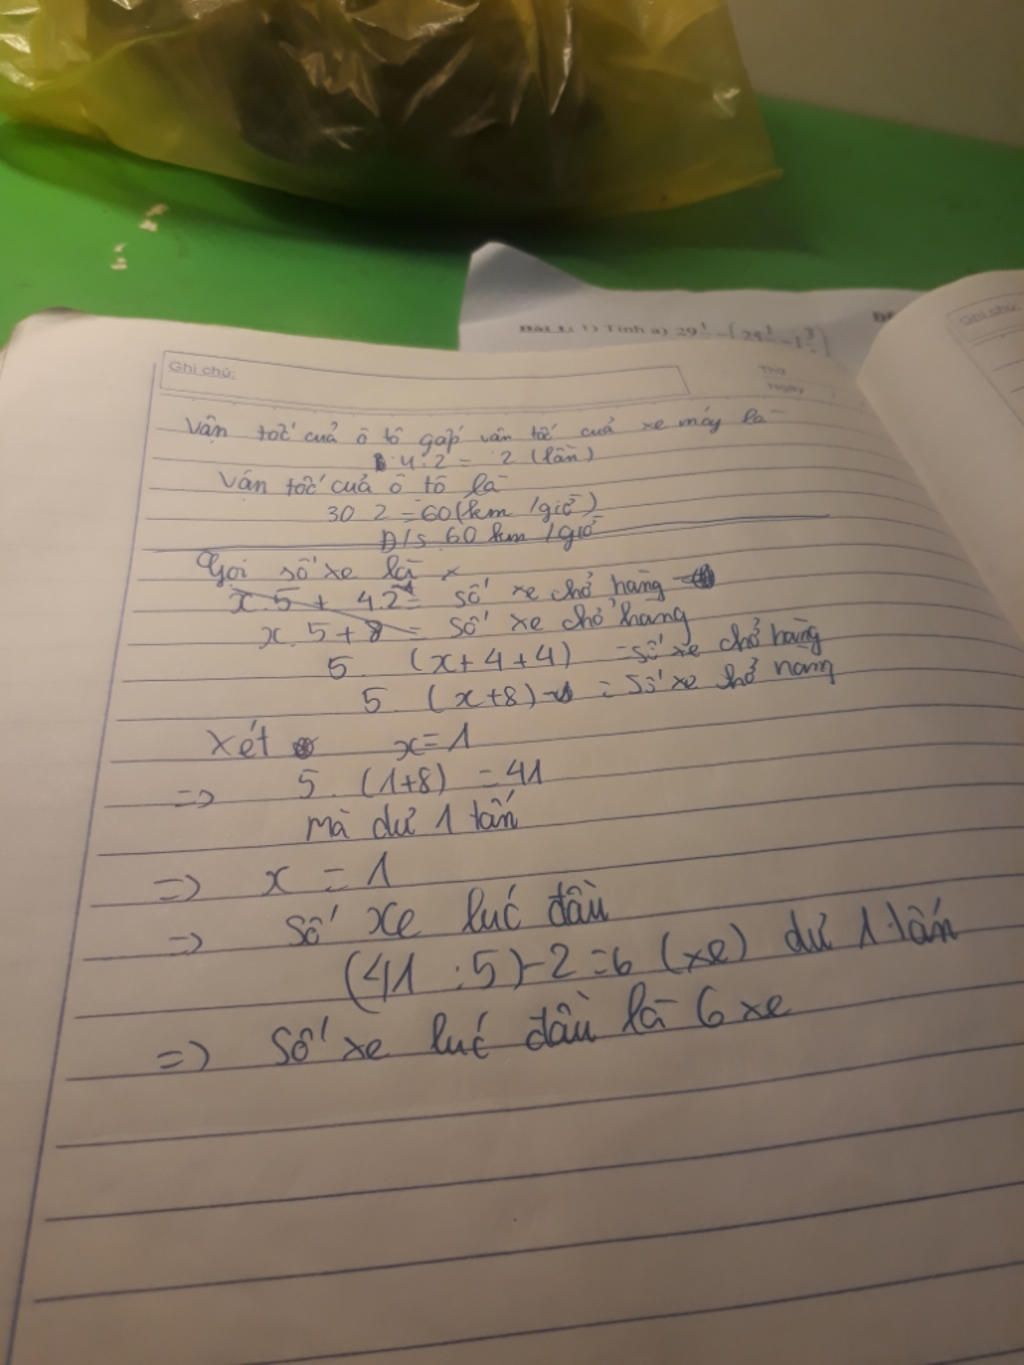 Bài 1: 1) Tính a)
Ghi chú:
Thứ
Ngày
Ghi chú:
Vận tốc của ô tô gấp vận tốc của xe máy là
4:2 = 2 (lần)
Vận tốc của ô tô là
30 2 = 60 (km/giờ)
Đ/s 60 km/giờ
Gọi số xe là x
x.5 + 4.2 = số xe chở hàng
x.5 + 8 = số xe chở hàng
5. (x+4+4) = số xe chở hàng
5. (x+8) = số xe chở hàng
Xét x=1
=> 5. (1+8) = 41
mà dư 1 tấn
=> x = 1
=> số xe lúc đầu
(41 :5)-2=6 (xe) dư 1 tấn
=> số xe lúc đầu là 6 xe